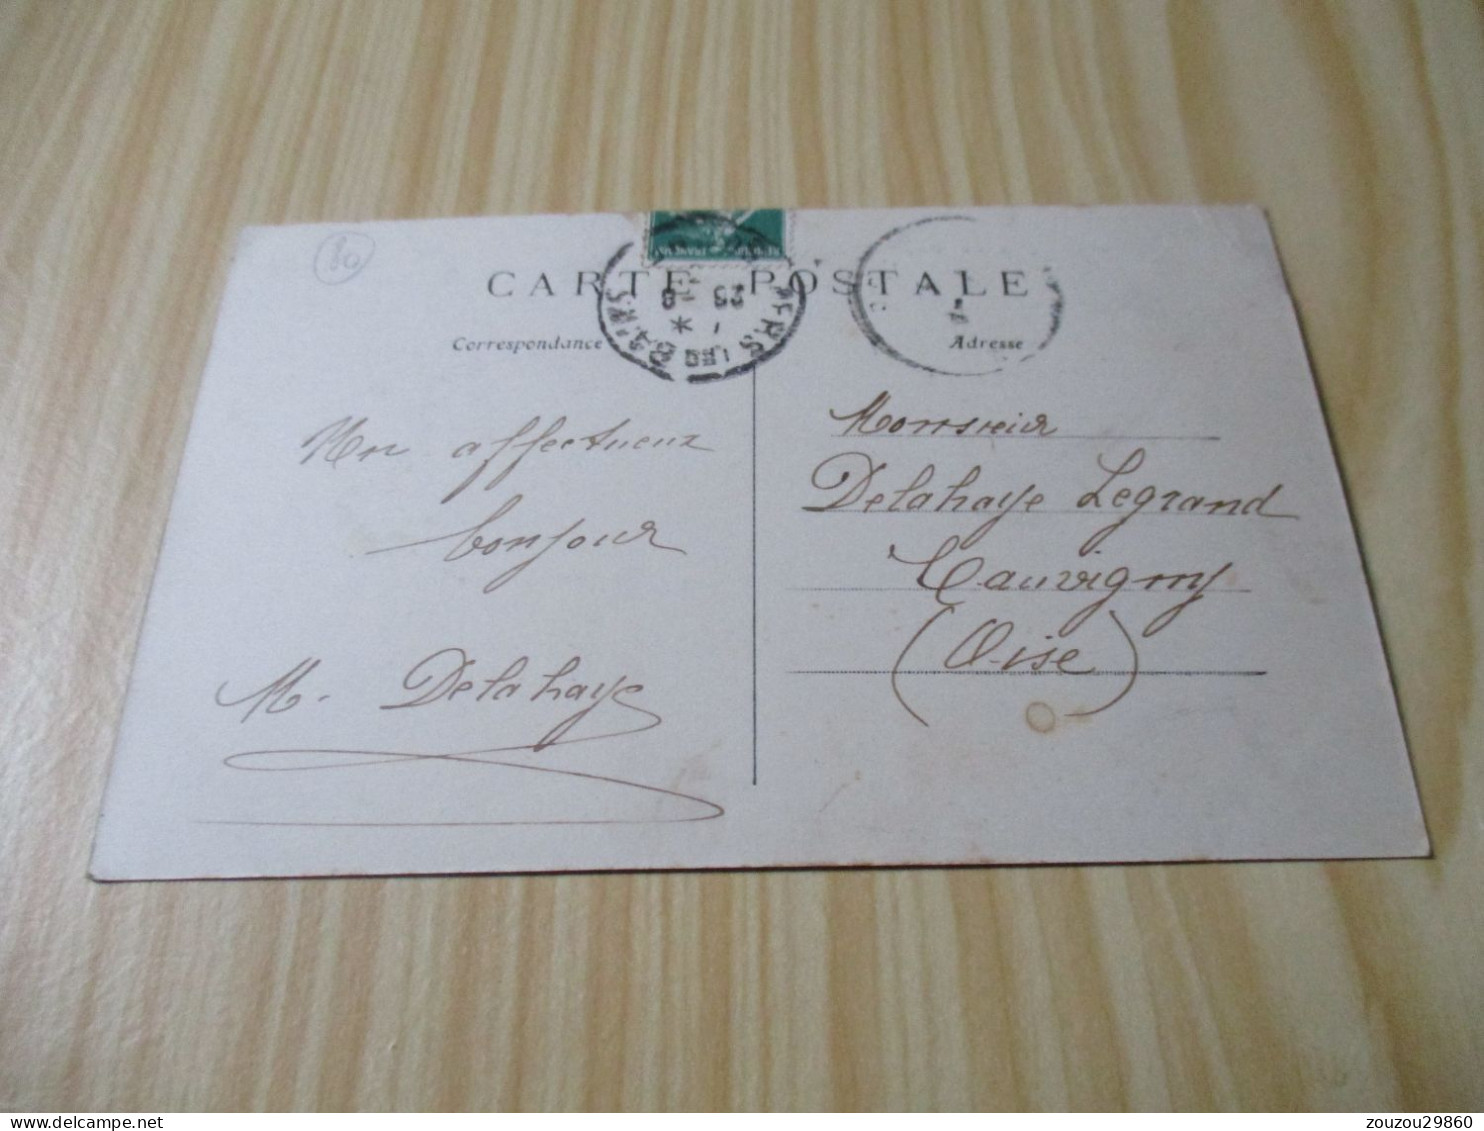 80
CARTE POSTALE
Correspondance
Adresse
25 8
LES BAINS
Mon affectueux
bonjour
M. Delahaye
Monsieur
Delahaye Legrand
Cauvigny
(Oise)
zouzou29860